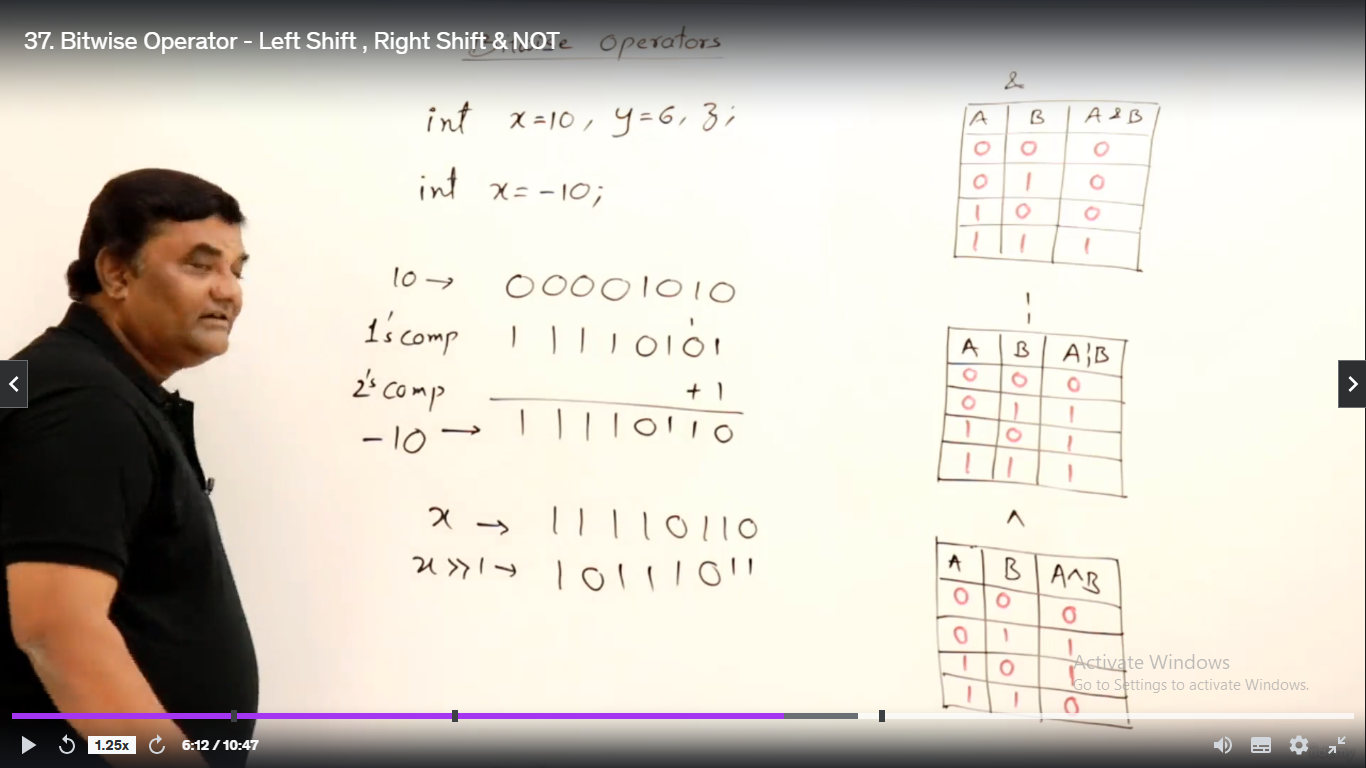 37. Bitwise Operator - Left Shift , Right Shift & NOT
Bitwise Operators
int x=10, y=6, z;
int x= -10;
10 → 00001010
1's comp 11110101
1
2's comp + 1
-10 → 11110110
x → 11110110
x >> 1 → 10111011
&
A B A & B
0 0 0
0 1 0
1 0 0
1 1 1
¦
A B A¦B
0 0 0
0 1 1
1 0 1
1 1 1
^
A B A^B
0 0 0
0 1 1
1 0 1
1 1 0
Activate Windows
Go to Settings to activate Windows.
1.25x 6:12 / 10:47